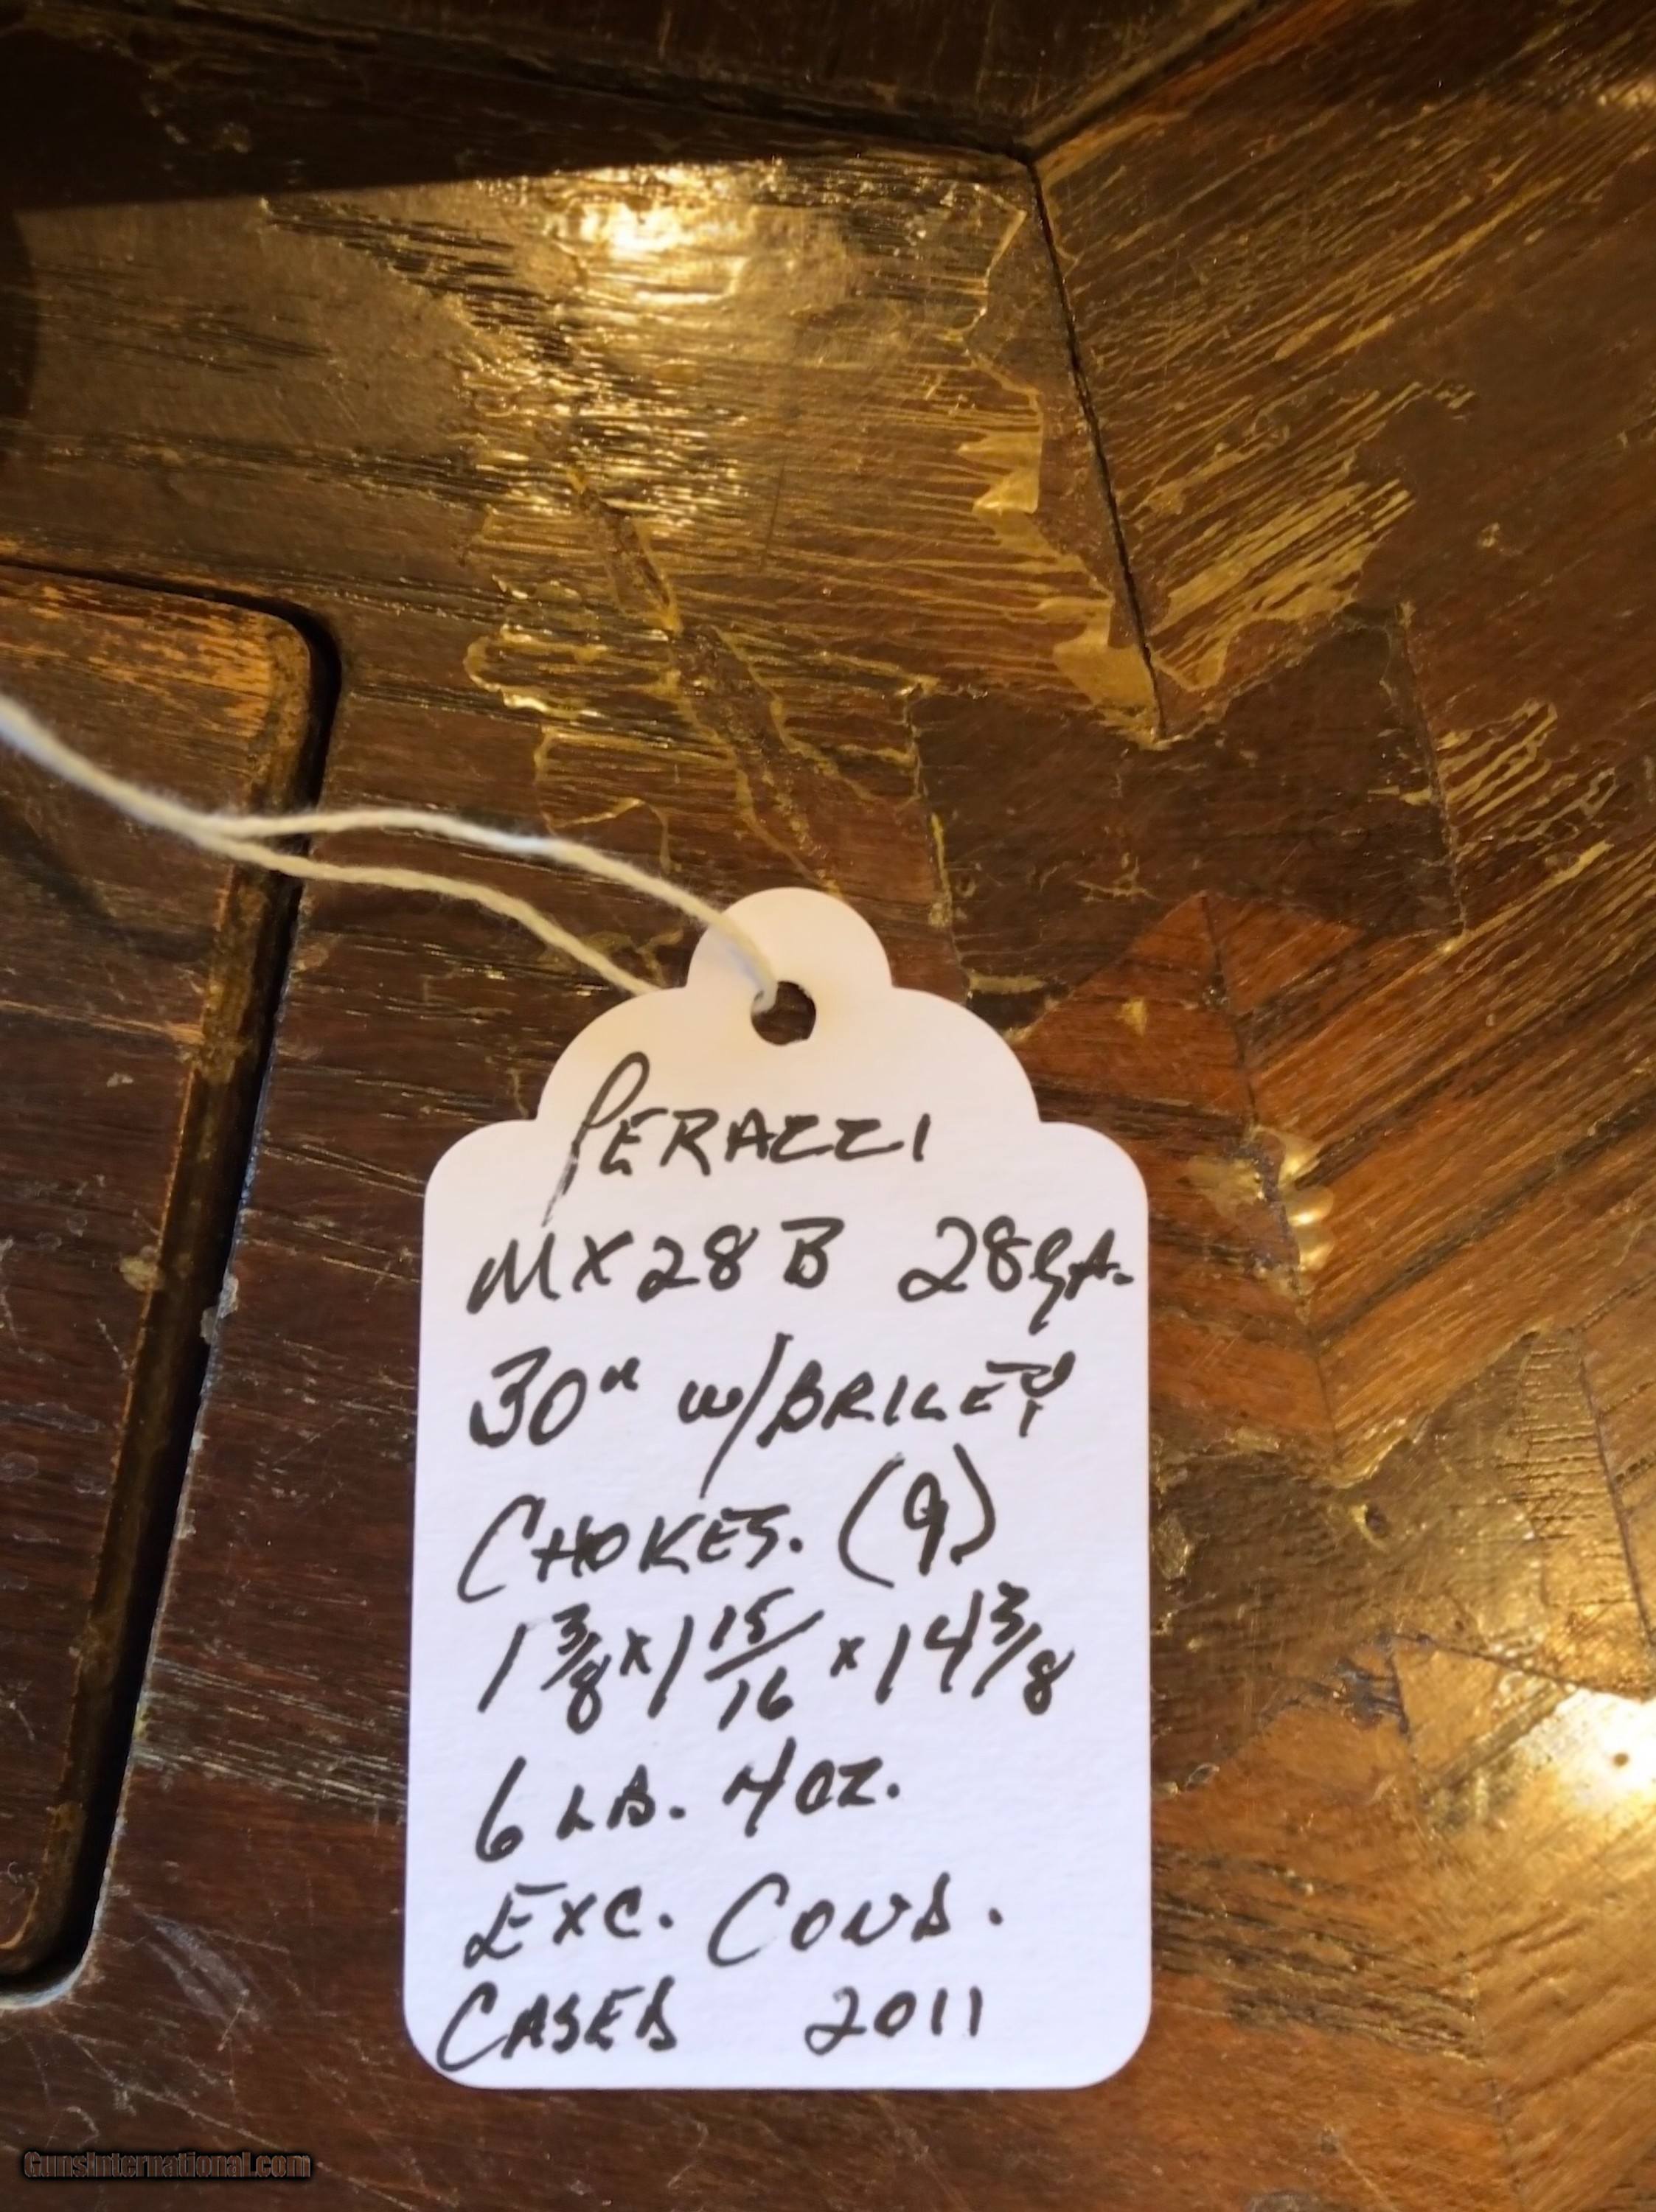 PERAZZI
MX28B 28GA.
30" W/BRILEY
CHOKES. (9)
1 3/8 x 1 15/16 x 14 3/8
6 LB. 4 OZ.
EXC. COND.
CASED 2011
GunsInternational.com